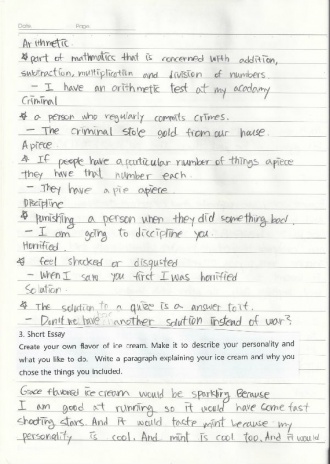 Date. Page.
Arithmetic.
part of mathmatics that is concerned with addition,
subtraction, multiplication and division of numbers.
- I have an arithmetic test at my acadamy
Criminal
a person who regularly commits crimes.
- The criminal stole gold from our house.
Apiece.
If people have a particular number of things apiece
they have that number each.
- They have a pie apiece.
Discipline
punishing a person when they did something bad.
- I am going to discipline you.
Horrified.
feel shocked or disgusted
- When I saw you first I was horrified
Solution.
The solution to a quiz is a answer to it.
- Don't we have another solution instead of war?
3. Short Essay
Create your own flavor of ice cream. Make it to describe your personality and
what you like to do. Write a paragraph explaining your ice cream and why you
chose the things you included.
flavored ice cream would be sparkling Because
I am good at running so it would have some fast
shooting stars. And it would taste mint because my
personality is cool. And mint is cool too. And it would